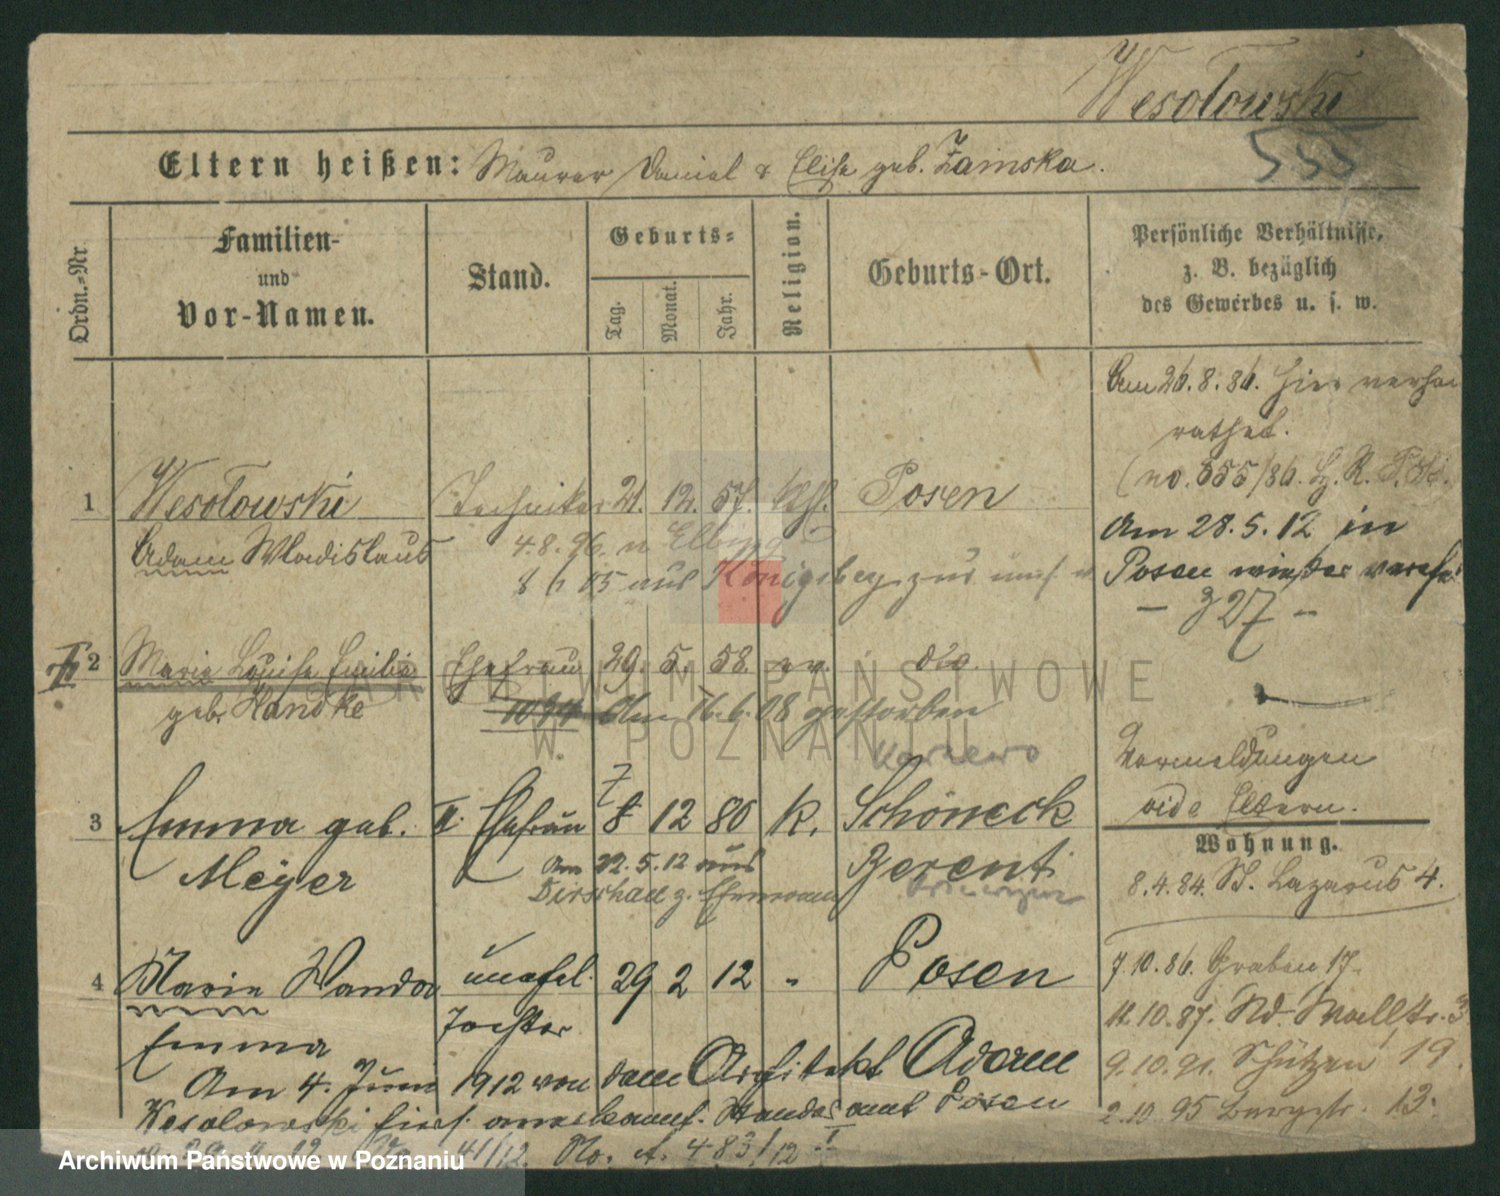 Wesołowski
555
Eltern heißen: Maurer Daniel & Elise geb. Zamska.
Ordn.-Nr.
Familien-
und
Vor-Namen.
Stand.
Geburts-
Tag.
Monat.
Jahr.
Religion.
Geburts-Ort.
Persönliche Verhältnisse,
z. B. bezüglich
des Gewerbes u. s. w.
1 Wesołowski Techniker 21. 12. 57. kath. Posen
Adam Wladislaus 4.8.96. n Elbing
05 aus Königsberg zur
II 2 Marie Louise Emilie Ehefrau 29. 5. 58. ev. do.
geb. Handke am 16.6.08 gestorben
3 Emma geb. II. Ehefrau 7 8 12 80 k. Schöneck
Meÿer Am 22.5.12 aus Berent
Dirschau z. Ehemann
4 Marie Wanda unehel. 29 2 12 " Posen
Tochter
Emma
Am 4. Juni 1912 von dem Architekt Adam
Wesolowski hies. anerkannt. Standesamt Posen
41/12. No. A. 483/12
Am 26.8.86. hier verhei
rathet.
(no. 555/86.
Am 28.5.12 in
Posen wieder verh.
- 327 -
Vermeldungen
vide Eltern.
Wohnung.
8.4.84. St. Lazarus 4.
7.10.86. Graben 17.
11.10.87. Nd. Wallstr. 3
9.10.91. Schützen 19.
2.10.95 Bergstr. 13.
ARCHIWUM PAŃSTWOWE
W POZNANIU
Archiwum Państwowe w Poznaniu